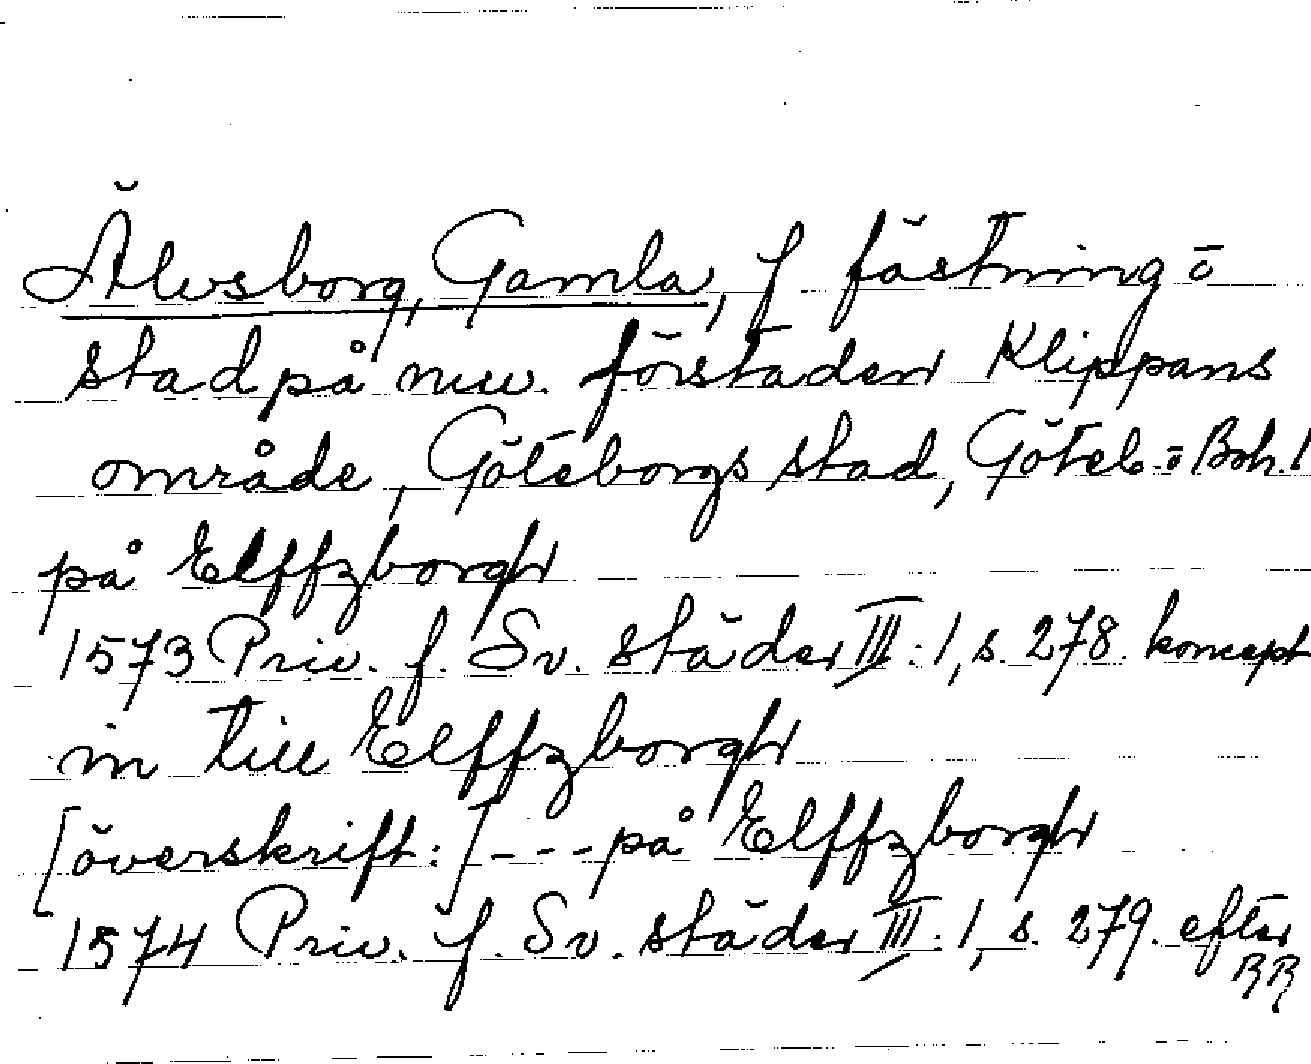 Älvsborg, Gamla, f fästning o
stad på nuv. förstaden Klippans
område, Göteborgs stad, Göteb. o Boh. l
på Elffzborgh
1573 Priv. f. Sv. städer III:1, s. 278. koncept
in till Elffzborgh
[överskrift:] --- på Elffzborgh
1574 Priv. f. Sv. städer III:1, s. 279. efter
RR